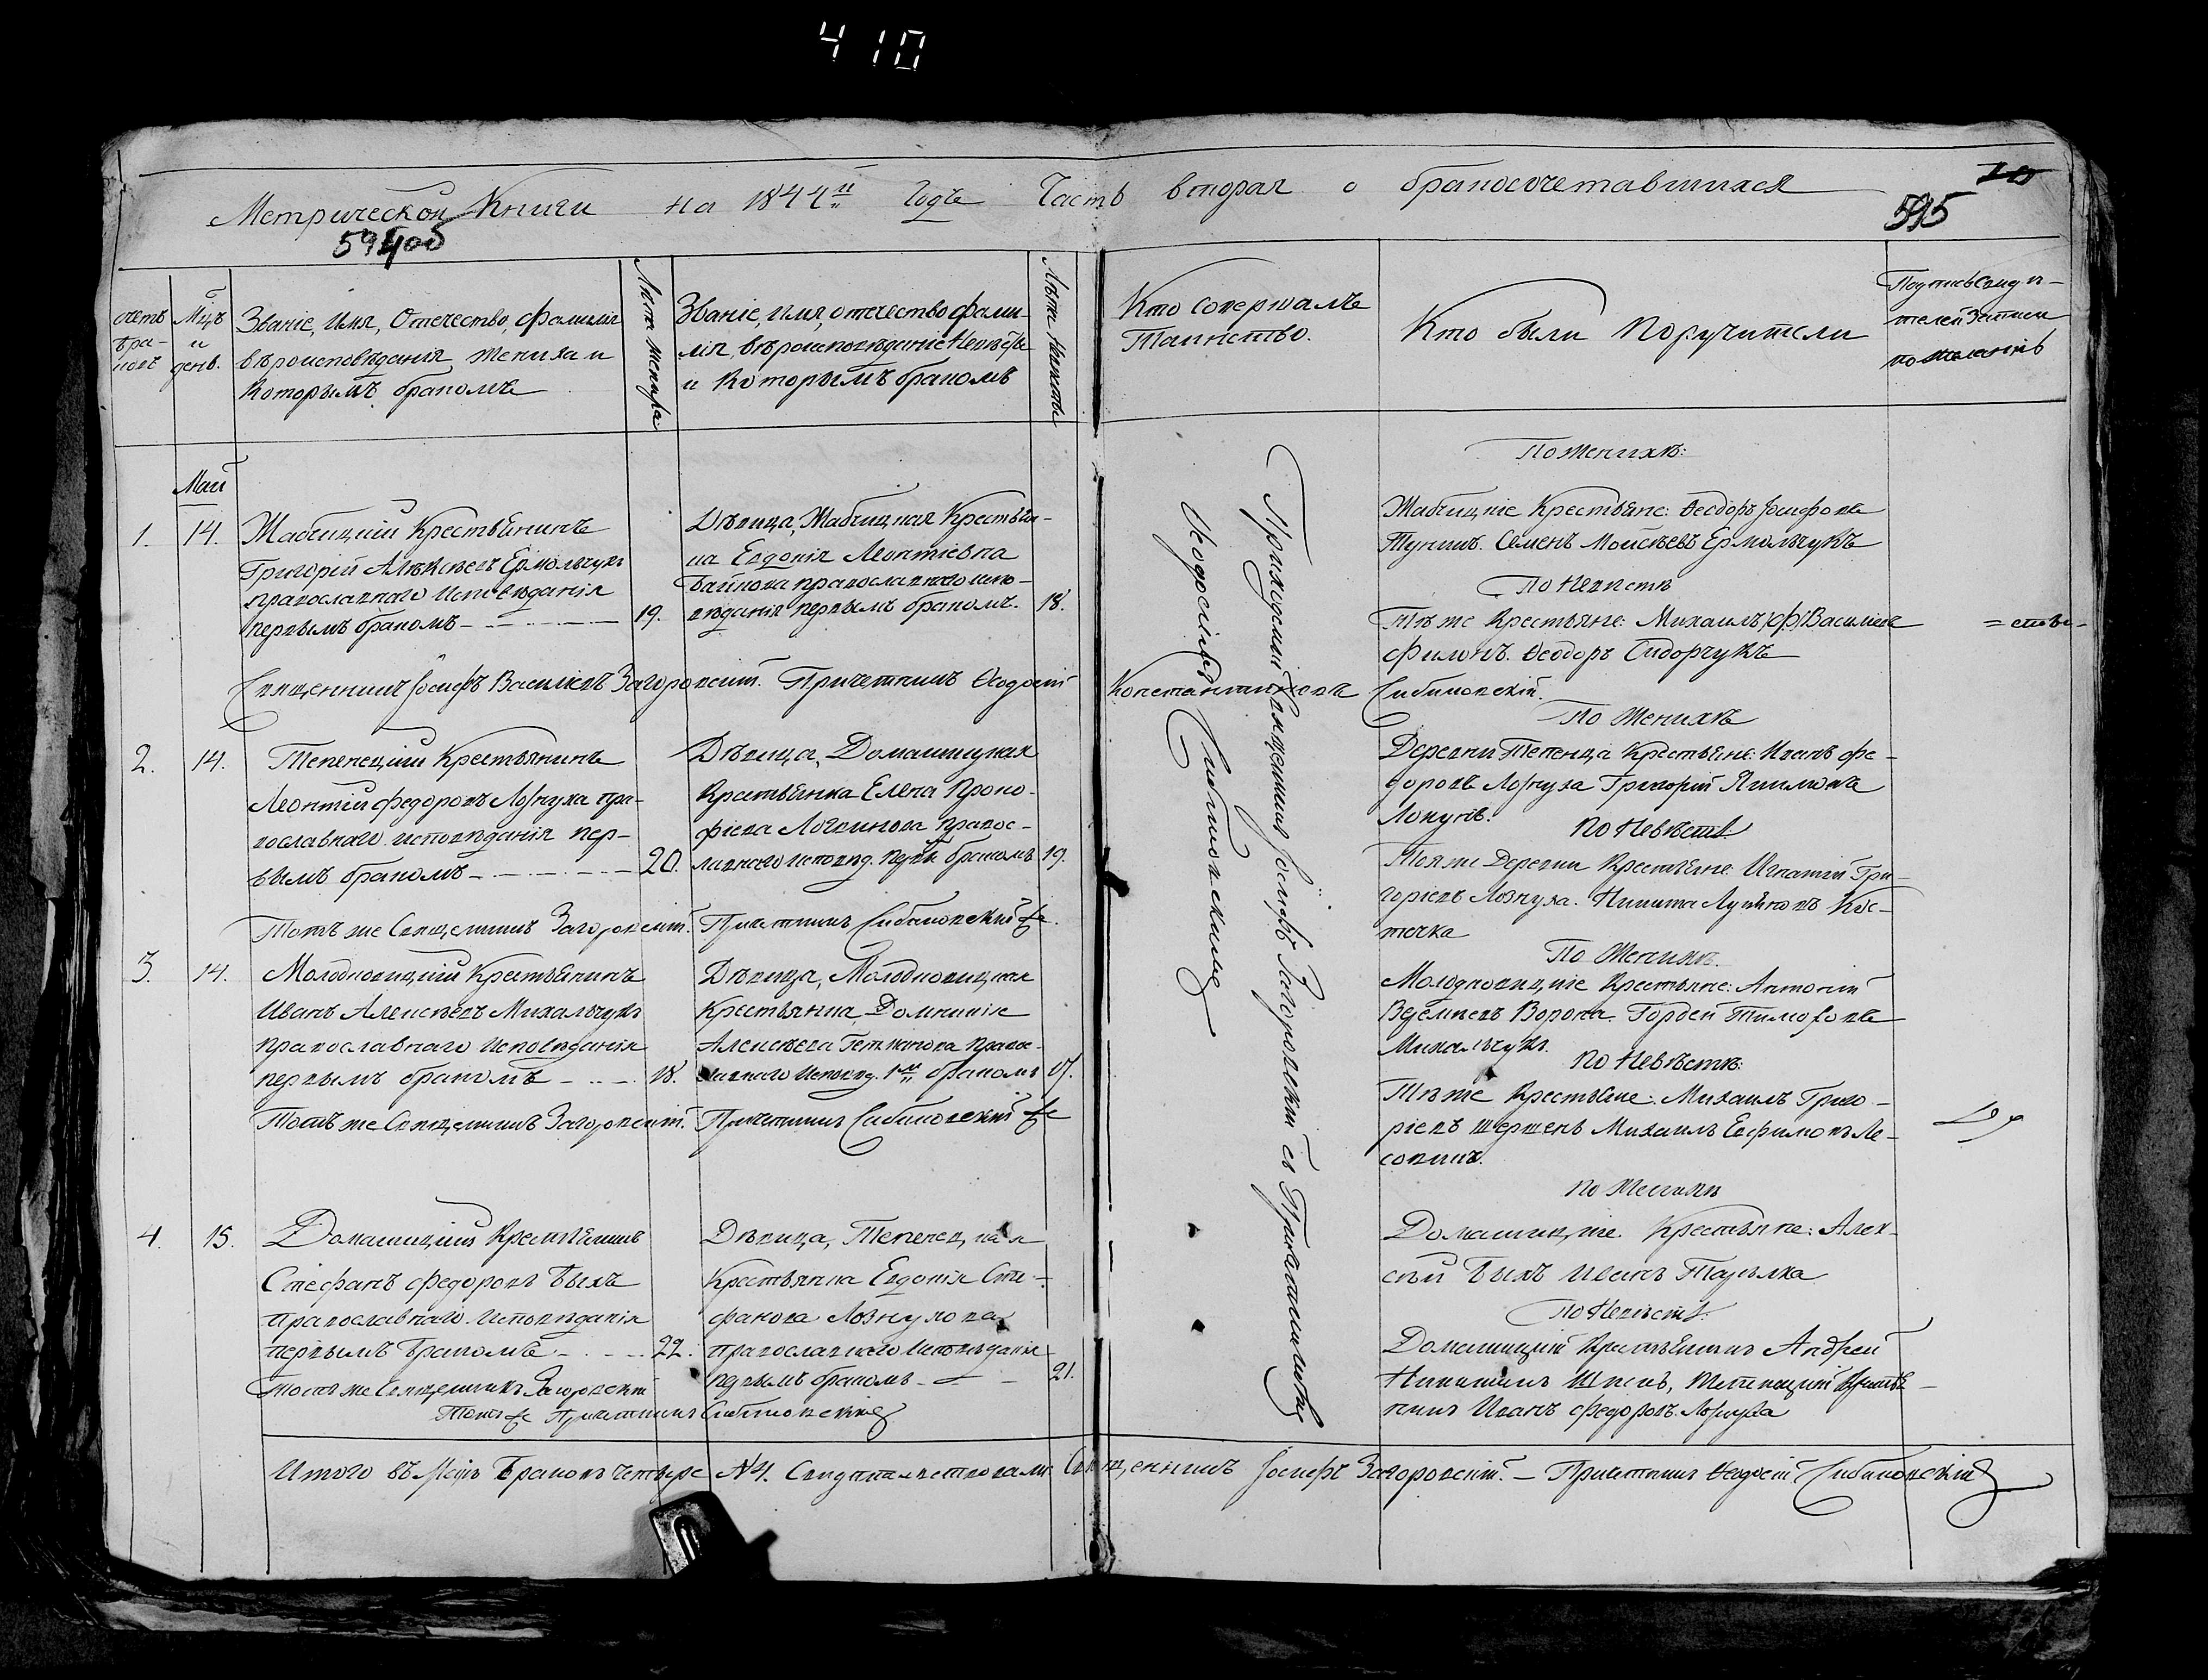 410
Метрической Книги на 1844й Годъ Часть вторая о бракосочетавшихся
10
595
594об
счетъ браковъ
Мцъ и день.
Званіе, Имя, Отечество, фамилія
вѣроисповѣданія жениха и
которымъ бракомъ
Лѣта жениха
Званіе, имя, отечество фами-
лія, вѣроисповѣданіе Невѣсты
и которымъ бракомъ
Лѣта Невѣсты
Кто совершалъ
Таинство.
Кто были Поручители
Подпись свидѣ-
телей записи
по желанію
Май
1. 14.
Жабчицкій Крестьянинъ
Григорій Алексѣевъ Ермольчукъ
православнаго Исповѣданія
первымъ бракомъ 19.
Дѣвица, Жабчицкая Крестьян-
ка Евдокія Леонтіевна
православнаго испо-
вѣданія первымъ бракомъ. 18.
По Женихѣ:
Жабчицкіе Крестьяне: Ѳеодоръ Іосифовъ
Семенъ Моисѣевъ Ермольчукъ
По Невѣстѣ
Тѣ же Крестьяне: Михаилъ Васильевъ
Филонъ. Ѳеодоръ Сидорчукъ
Священникъ Іосифъ Васильевъ Загоровскій. Причетникъ Ѳеодосій Константиновъ
Приходскій Священникъ Іосифъ Загоровскій съ Причетникомъ
Ѳеодосіемъ
2. 14.
Тепенецкій Крестьянинъ
Леонтій Федоровъ Ловнуха пра-
вославнаго исповѣданія пер-
вымъ бракомъ 20.
Дѣвица, Домашицкая
Крестьянка Елена Проко-
фіева правос-
лавнаго исповѣд. перв. бракомъ 19.
По Женихѣ
Деревни Тепенца Крестьяне: Иванъ Фе-
доровъ Ловнуха Григорій
По Невѣстѣ
Той же Деревни Крестьяне Игнатій Гри-
горіевъ Ловнуха. Никита Кос-
течка
Тотъ же Священникъ Загоровскій. Причетникъ
3. 14.
Молодковицкій Крестьянинъ
Иванъ Алексѣевъ Михальчукъ
православнаго Исповѣданія
первымъ бракомъ 18.
Дѣвица, Молодковицкая
Крестьянка Домникія
Алексѣева правос-
лавнаго Исповѣд. 1м бракомъ 17.
По Женихѣ.
Молодковицкіе Крестьяне: Антоній
Ворона. Гордей Тимофовъ
Михальчукъ.
По Невѣстѣ:
Тѣ же Крестьяне: Михаилъ Григо-
ріевъ Шершень Михаилъ Евфимовъ Ле-
совикъ.
Тотъ же Священникъ Загоровскій. Причетникъ
4. 15.
Домашицкій Крестьянинъ
Стефанъ Федоровъ Быкъ
православнаго Исповѣданія
первымъ Бракомъ 22.
Дѣвица, Тепенецкая
Крестьянка Евдокія Сте-
фанова Ловнухова
православнаго Исповѣданія
первымъ бракомъ 21.
По Женихѣ
Домашицкіе Крестьяне: Алек-
сѣй Быкъ Иванъ
По Невѣстѣ:
Домашицкій Крестьянинъ Андрей
Никитинъ Тепенецкій Крестья-
нинъ Иванъ Федоровъ Ловнуха
Тотъ же Священникъ Загоровскій
Тотъ же Причетникъ
Итого въ Маѣ Браковъ четыре №4. Свидѣтельствовали Священникъ Іосифъ Загоровскій. – Причетникъ Ѳеодосій